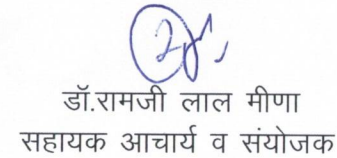 डॉ.रामजी लाल मीणा
सहायक आचार्य व संयोजक